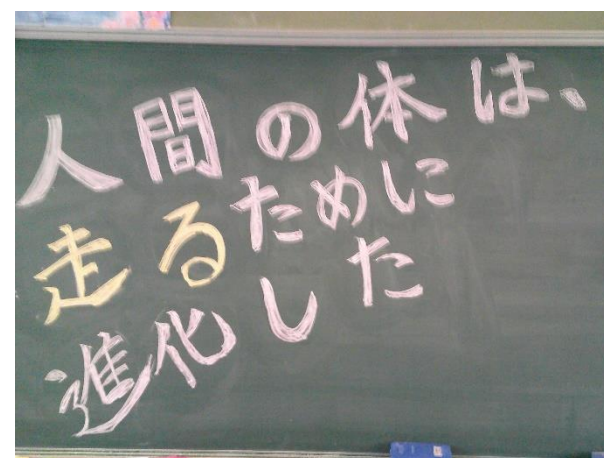 人間の体は、
走るために
進化した